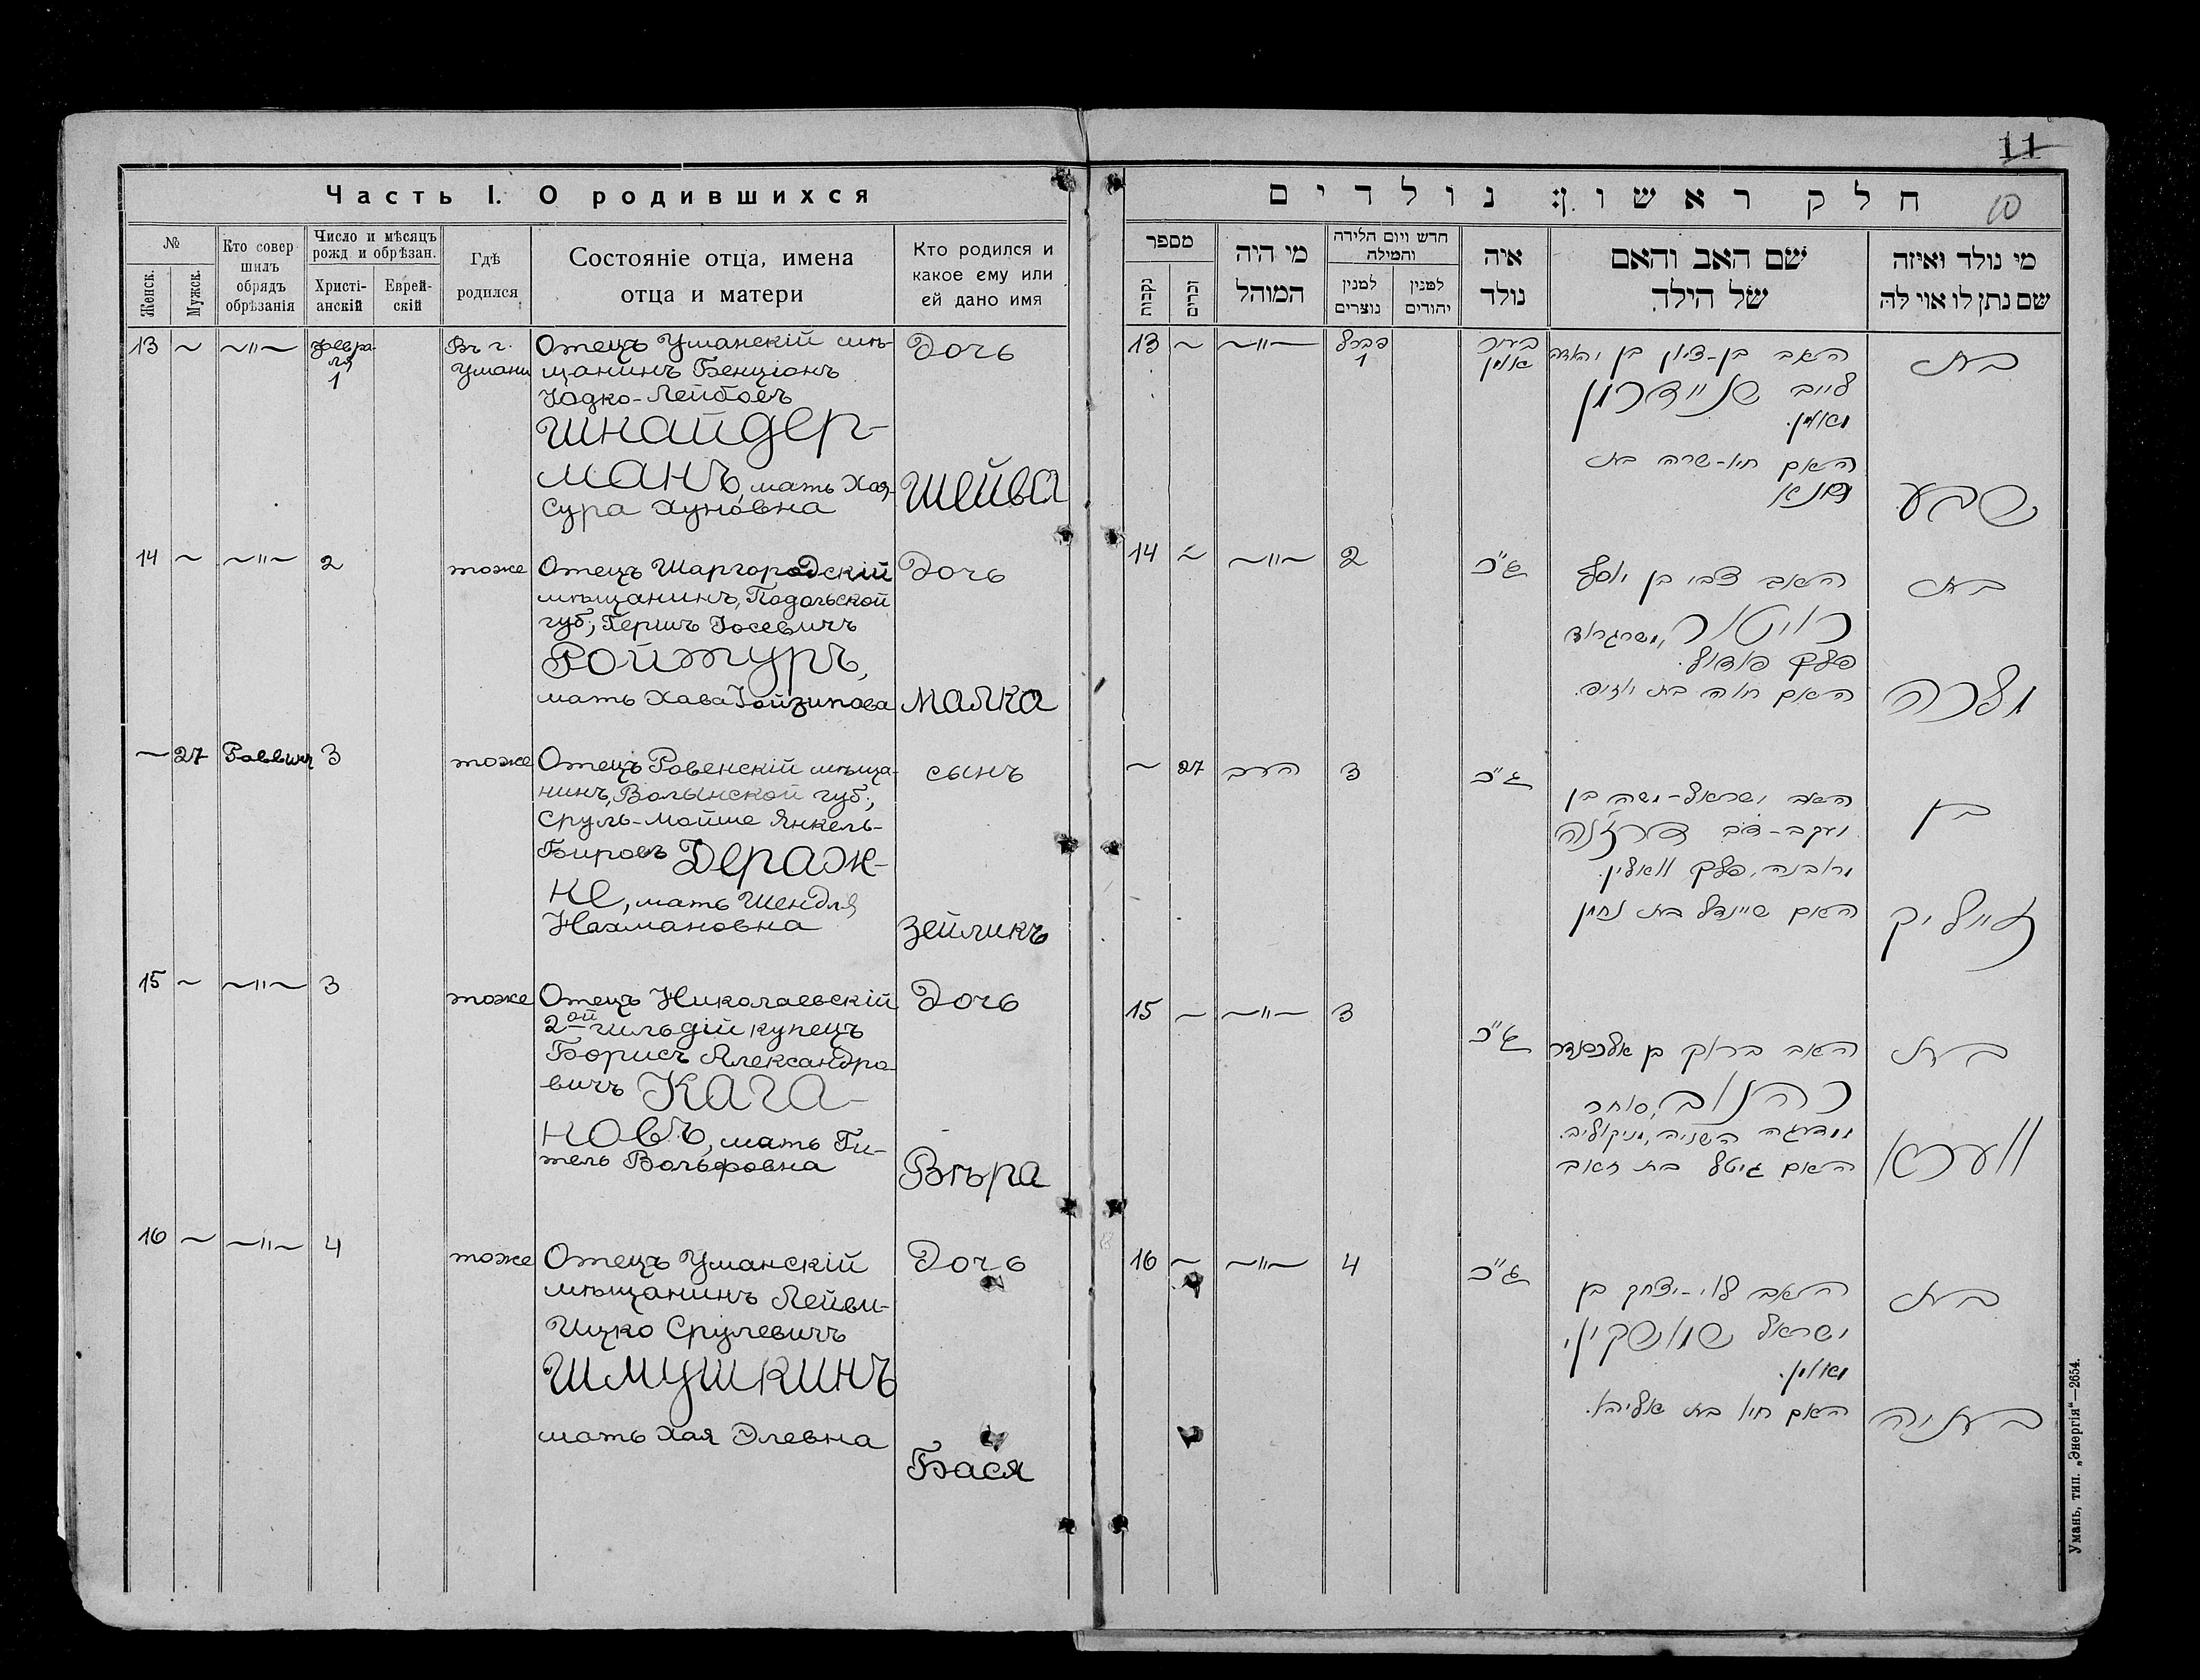 11
10
Часть I. О родившихся
№
Женск.
Мужск.
Кто совер
шилъ
обрядъ
обрѣзанія
Число и мѣсяцъ
рожд и обрѣзан.
Христі-
анскій
Еврей-
скій
Гдѣ
родился
Состояніе отца, имена
отца и матери
Кто родился и
какое ему или
ей дано имя
13 ~ ~"~ февра-
ля
1
Въ г.
Умани
Отецъ Уманскій мѣ-
щанинъ Бенціонъ
Іодко-Лейбовъ
Шнайдер-
манъ, мать Хая-
Сура Хуновна
Дочь
Шейва
14 ~ ~"~ 2 тоже
Отецъ Шаргородскій
мѣщанинъ, Подольской
губ., Гершъ Іосевичъ
Ройтуръ,
мать Хава Іойзипова
Дочь
Малка
~ 27 Раввинъ 3 тоже
Отецъ Ровенскій мѣща-
нинъ, Волынской губ.,
Сруль-Мойше Янкель-
Бировъ Дераж-
не, мать Шендля
Нахмановна
сынъ
Зейликъ
15 ~ ~"~ 3 тоже
Отецъ Николаевскій
2ой гильдій купецъ
Борисъ Александро-
вичъ Кага-
новъ, мать Ги-
тель Вольфовна
Дочь
Вѣра
16 ~ ~"~ 4 тоже
Отецъ Уманскій
мѣщанинъ Лейви-
Ицко Срулевичъ
Шмушкинъ
мать Хая Элевна
Дочь
Бася
חלק ראשון: נולדים
מספר
נקבות
זכרים
מי היה
המוהל
חדש ויום הלידה
והמילה
למנין
נוצרים
למנין
יהודים
איה
נולד
שם האב והאם
של הילד
מי נולד ואיזה
שם נתן לו אוי לה
13 ~ ~"~ פברל
1
בעיר
אומן
האב בן-ציון בן יודא
לייב שניידרמן
מאומן.
האם חיא-שרה בת
בת
שבע
14 ~ ~"~ 2 ג"כ
האב צבי בן יוסף
רויטור, משרגראד
פלך פאדאל.
האם חוה בת יוזיפ.
בת
מלכה
~ 27 הרב 3 ג"כ
האב ישראל-משה בן
יעקב-דוב דרזנה
מראבנה, פלך וואלין.
האם שיינדל בת נחמן
בן
זייליק
15 ~ ~"~ 3 ג"כ
האב ברוך בן אלכסנדר
כהנוב, סוחר
מדרגה השניה, מניקוליב.
האם גיטל בת זאב
בת
ווערא
16 ~ ~"~ 4 ג"כ
האב לוי-יצחק בן
ישראל שמושקין,
מאומן.
האם חיא בת אליהו.
בת
בתיה
Умань, тип. „Энергія"—2654.